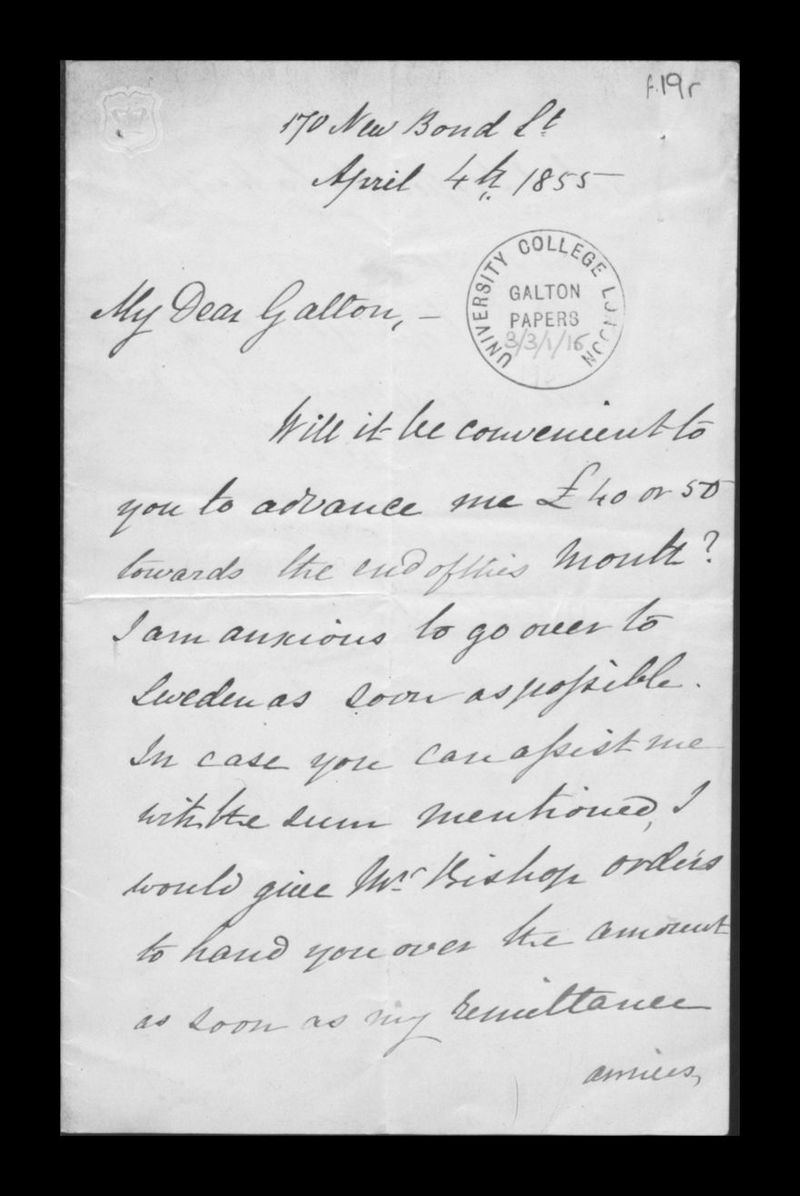 f.19r
170 New Bond St
April 4th, 1855
My Dear Galton, –
UNIVERSITY COLLEGE LONDON
GALTON
PAPERS
3/3/1/16
Will it be convenient to
you to advance me £40 or 50
towards the end of this Month?
I am anxious to go over to
Sweden as soon as possible.
In case you can assist me
with the sum mentioned, I
would give Mr Bishop orders
to hand you over the amount
as soon as my remittance
arrives,